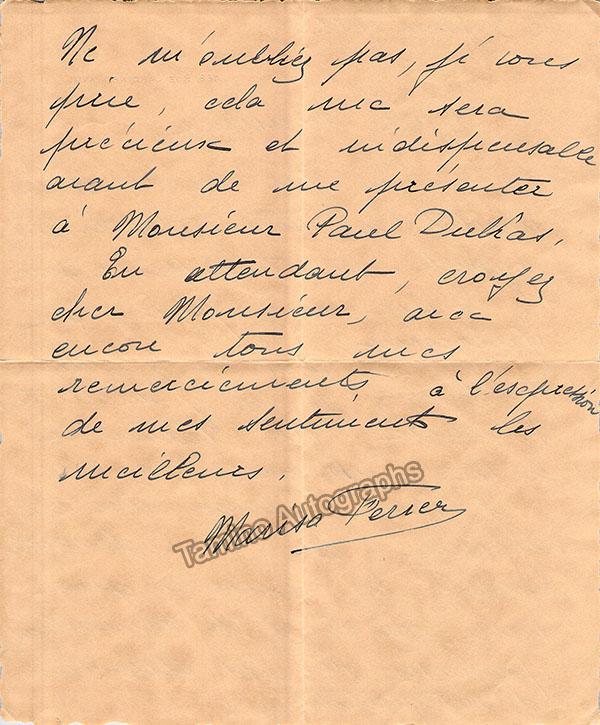 Ne m'oubliez pas, je vous
prie, cela me sera
précieux et indispensable
avant de me présenter
à Monsieur Paul Dukas.
En attendant, croyez
cher Monsieur, avec
encore tous mes
remerciements à l'expression
de mes sentiments les
meilleurs.
Marisa Ferrer
Tamino Autographs